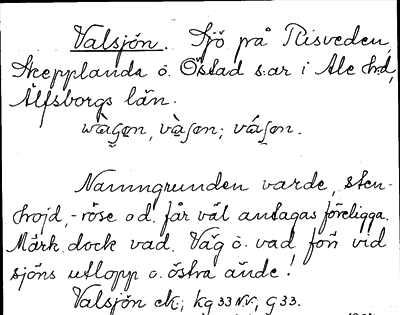 Valsjön. Sjö på Risveden,
Skepplanda o. Östad s:ar i Ale hrd,
Älfsborgs län.
Namngrunden varde, sten-
hojd, -röse o d. får väl antagas föreligga.
Märk dock vad. Väg o. vad för vid
sjöns utlopp o. östra ände!
Valsjön ek; kg 33 NV, G 33.